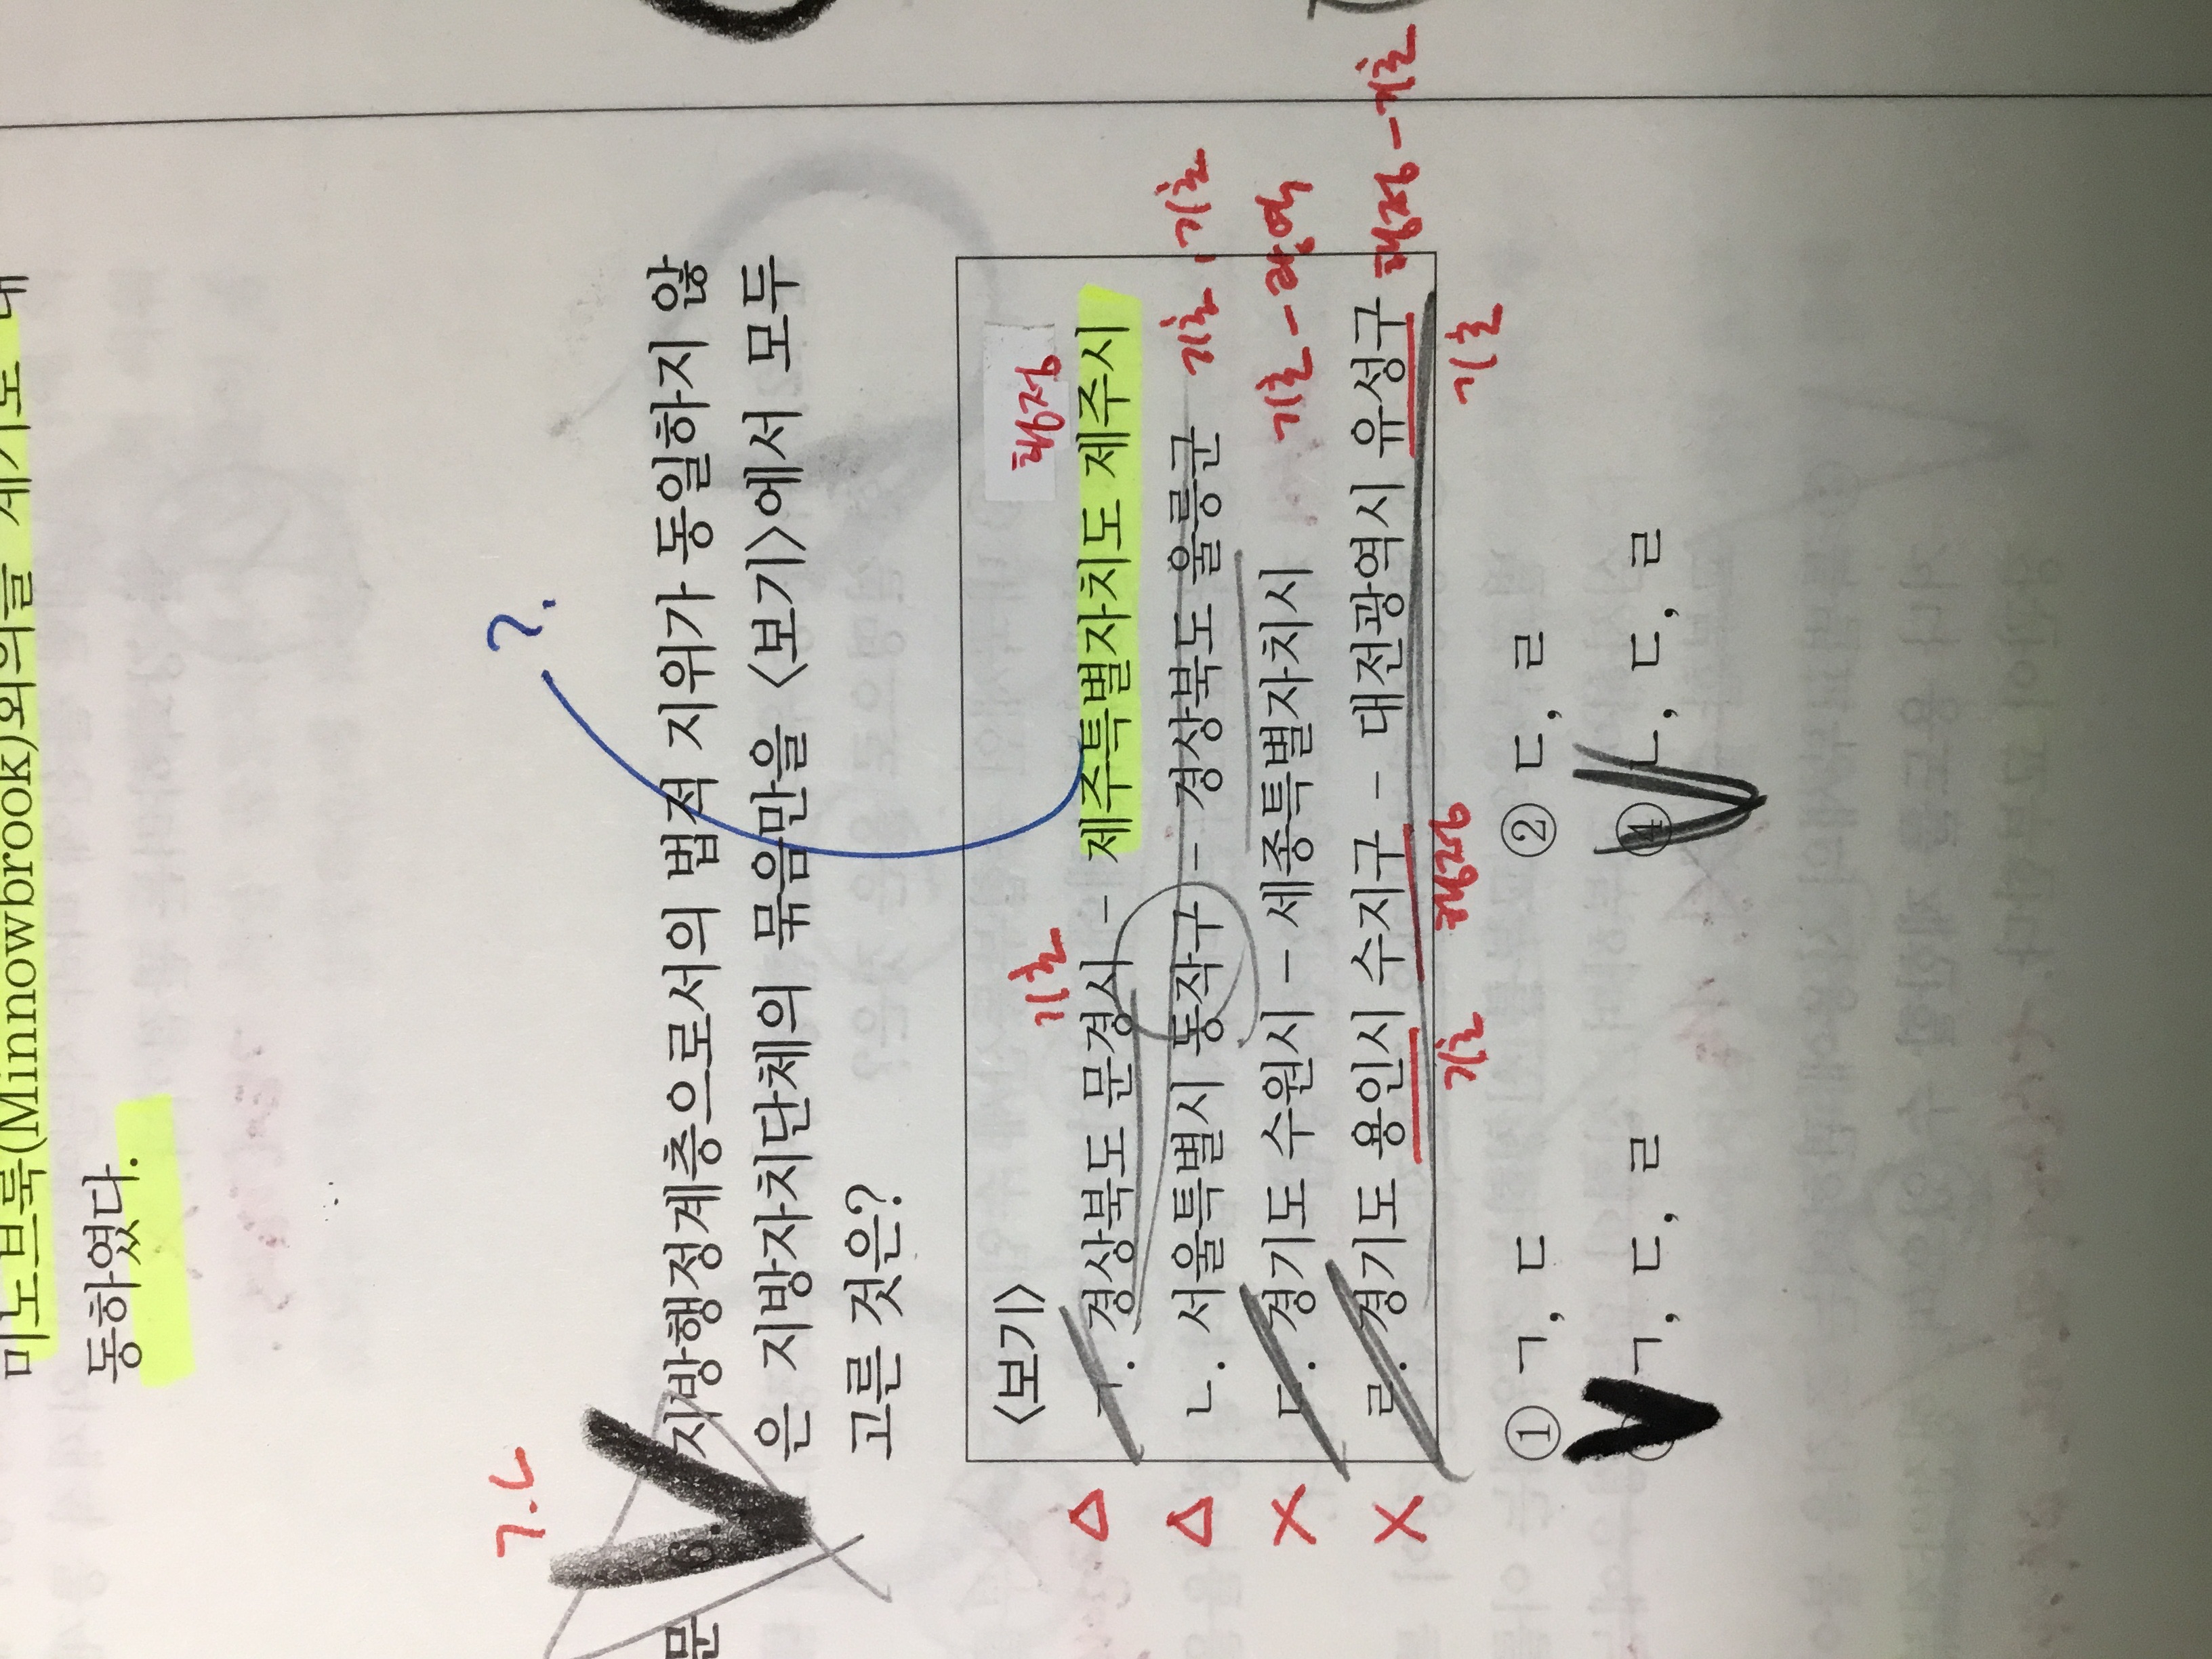 미노브룩(Minnowbrook)회의를 계기로
동하였다.
?.
ㄱ.ㄴ
문 6. 지방행정계층으로서의 법적 지위가 동일하지 않
은 지방자치단체의 묶음만을 <보기>에서 모두
고른 것은?
<보기>
기초 행정
△ ㄱ. 경상북도 문경시 - 제주특별자치도 제주시
△ ㄴ. 서울특별시 동작구 - 경상북도 울릉군 기초, 기초
X ㄷ. 경기도 수원시 - 세종특별자치시 기초 - 광역
X ㄹ. 경기도 용인시 수지구 - 대전광역시 유성구 행정 - 기초
기초 행정 기초
① ㄱ, ㄷ ② ㄷ, ㄹ
ㄱ, ㄷ, ㄹ ④ ㄴ, ㄷ, ㄹ